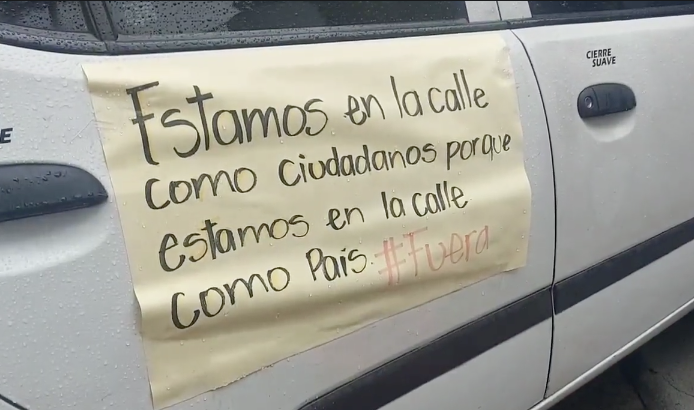 Estamos en la calle
como ciudadanos porque
estamos en la calle
como País. #Fuera
CIERRE
SUAVE
E